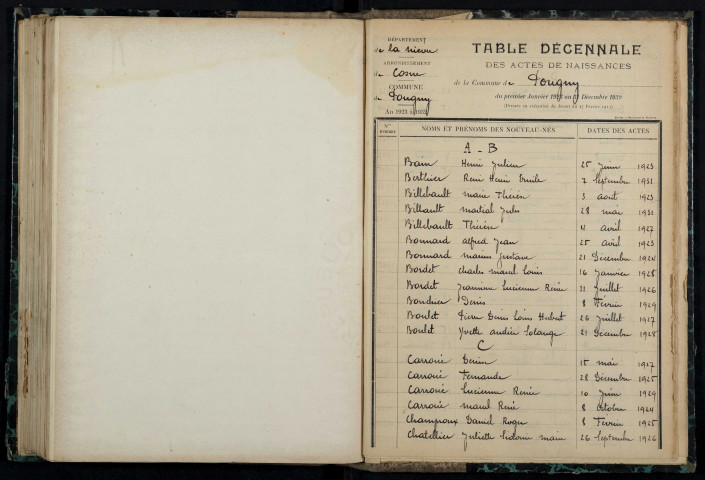 DÉPARTEMENT
de la nievre
ARRONDISSEMENT
de Cosne
COMMUNE
de Pougny
An 1923 à 1932
TABLE DÉCENNALE
DES ACTES DE NAISSANCES
de la Commune de Pougny
du premier Janvier 1923 au 31 Décembre 1932
(Dressée en exécution du décret du
NOMS ET PRÉNOMS DES NOUVEAU-NÉS DATES DES ACTES
A - B
Bain Henri Julien 25 Juin 1923
Berthier René Henri Emile 7 Septembre 1931
Billebault marie Thérèse 3 août 1923
Billault martial Jules 28 mai 1931
Billebault Thérèse 11 avril 1927
Bonnard alfred Jean 25 avril 1923
Bonnard marius Gustave 21 Décembre 1924
Bordet charles marcel Louis 16 Janvier 1928
Bordet Jeannine Lucienne Renée 31 Juillet 1926
Denis 8 Février 1929
Boulet Pierre Denis Louis Hubert 26 Juillet 1927
Boulet Yvette andrée Solange 21 Décembre 1928
C
Carroué Denise 15 mai 1927
Carroué Fernande 28 Décembre 1925
Carroué Lucienne Renée 10 Juin 1929
Carroué marcel René 8 Octobre 1924
Champroux Daniel Roger 8 Février 1925
Chatellier Juliette Sidonie marie 26 Septembre 1926